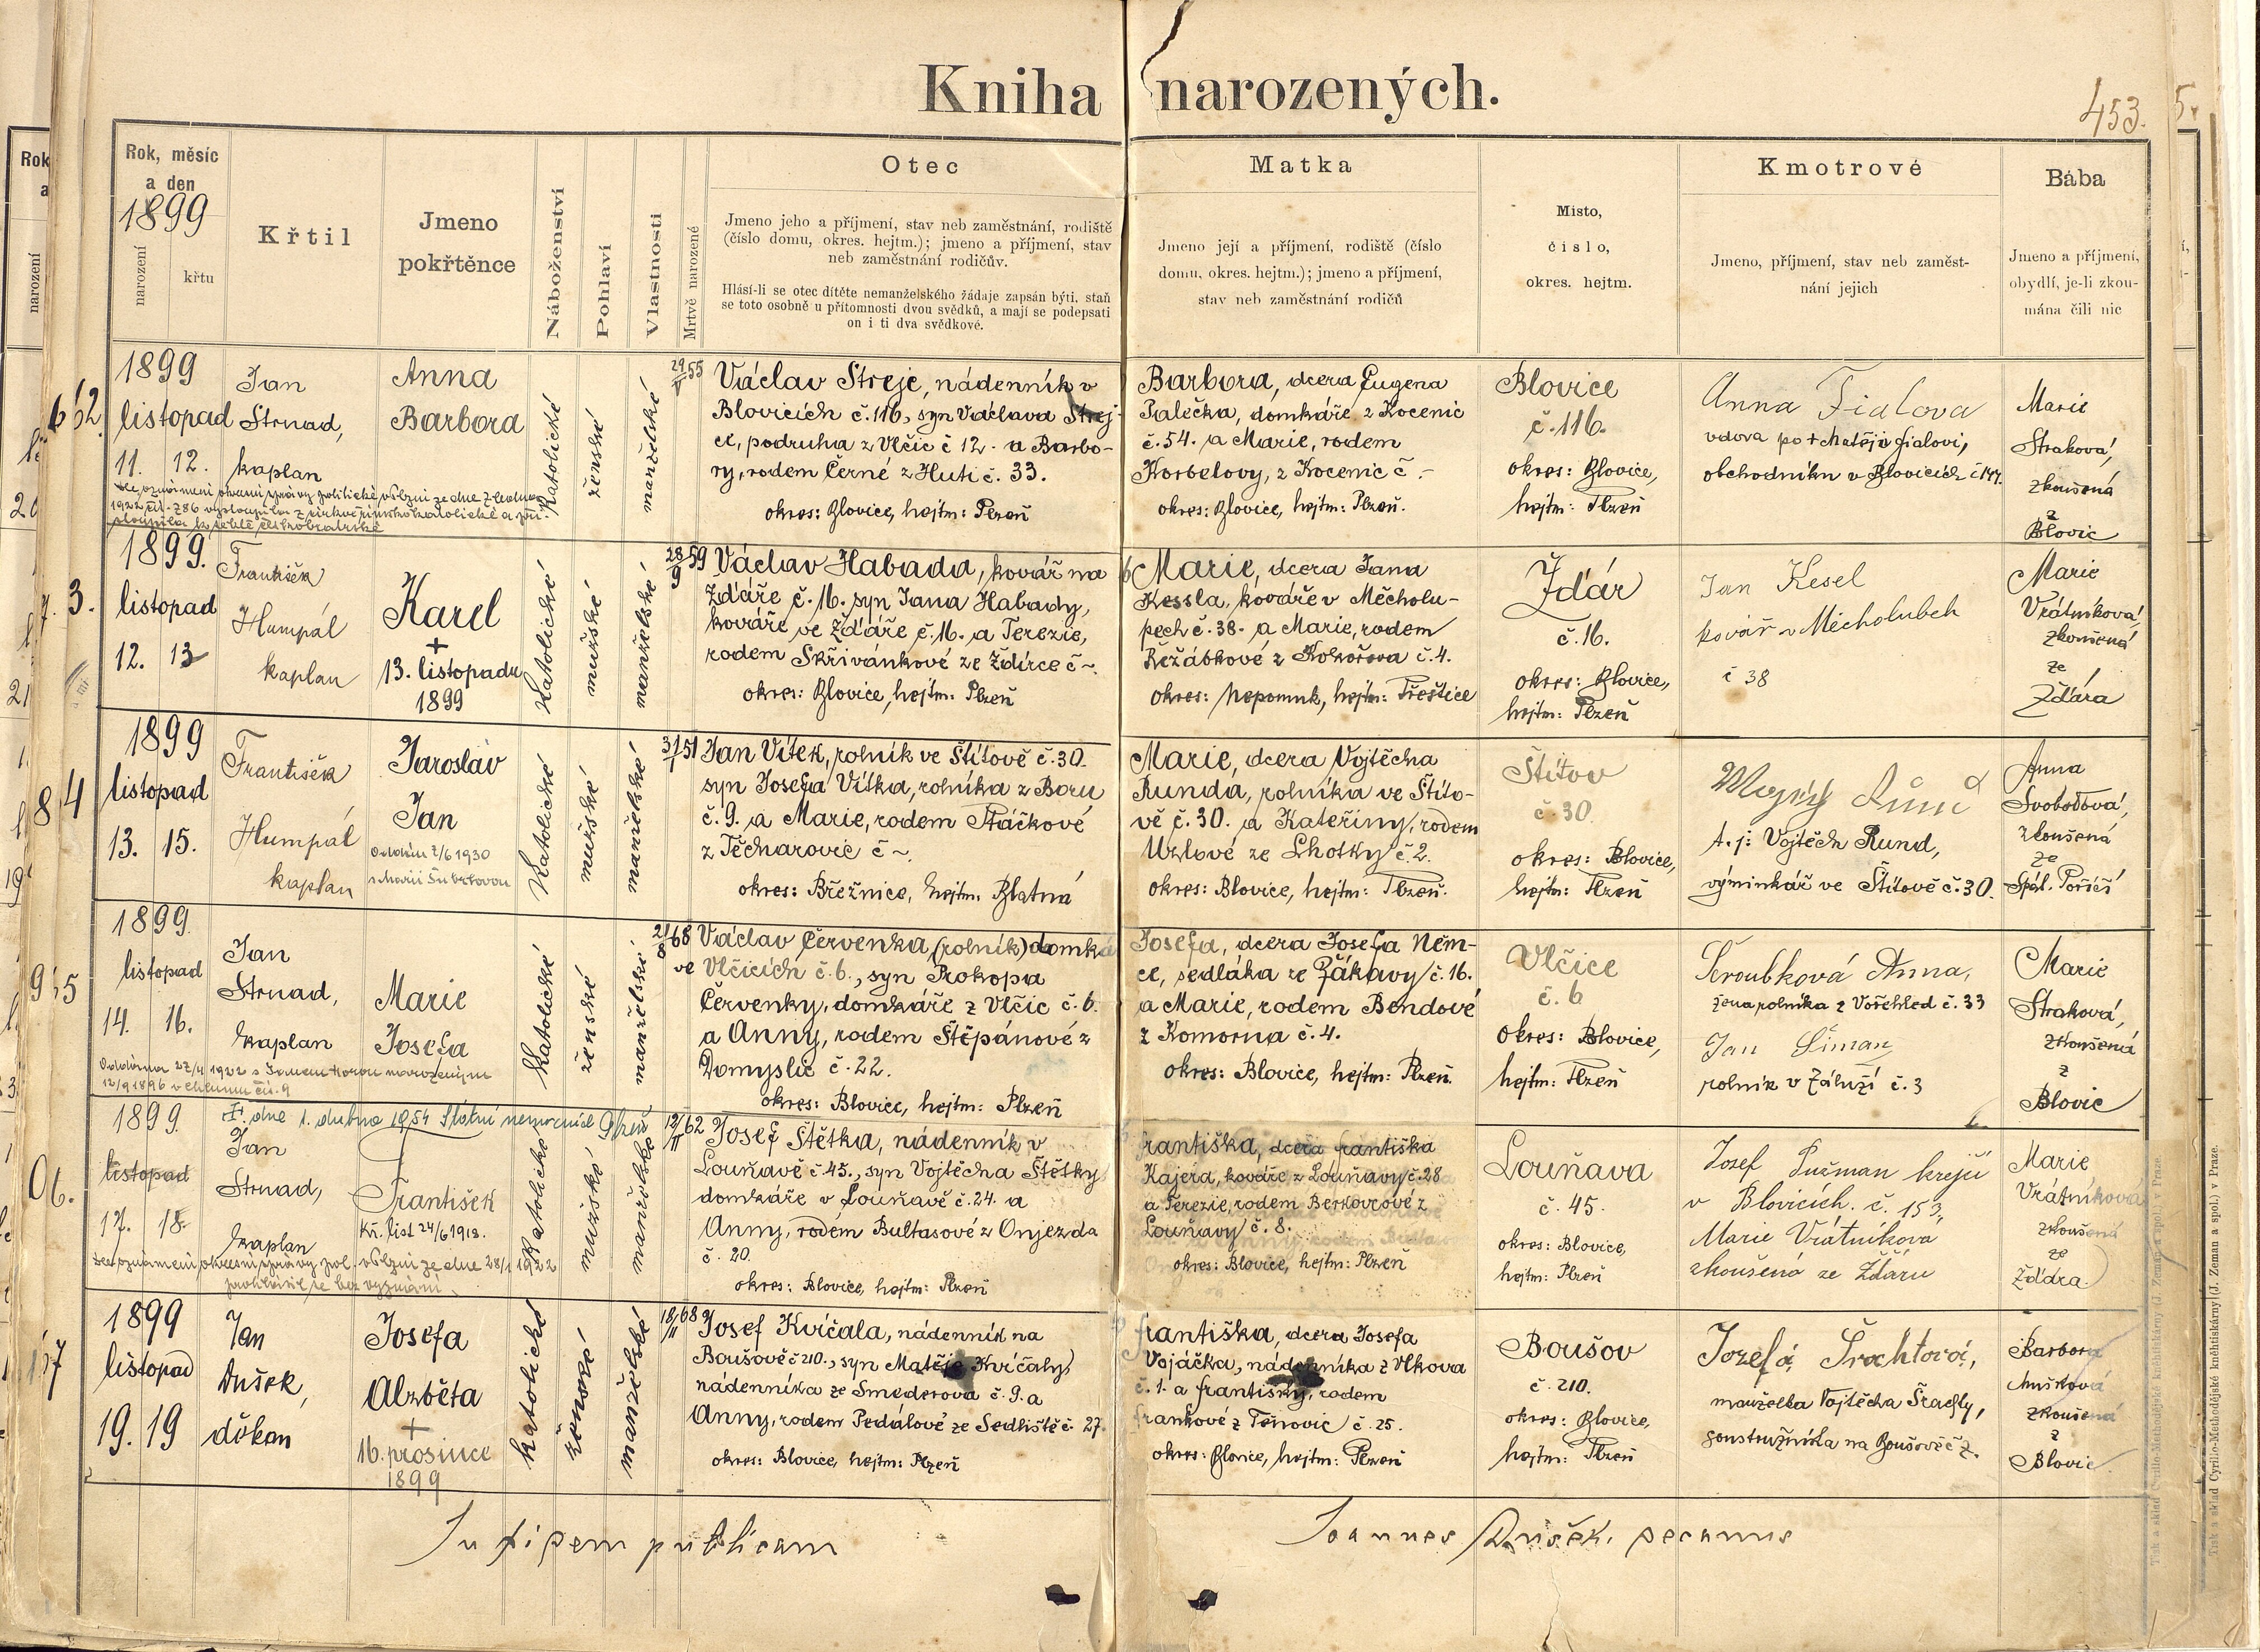 Kniha narozených.
453.
Rok, měsíc
a den
1899
narození
křtu
Křtil
Jmeno
pokřtěnce
Náboženství
Pohlaví
Vlastnosti
Mrtvě narozené
Otec
Jmeno jeho a příjmení, stav neb zaměstnání, rodiště
(číslo domu, okres. hejtm.); jmeno a příjmení, stav
neb zaměstnání rodičův.
Hlásí-li se otec dítěte nemanželského žádaje zapsán býti, staň
se toto osobně u přítomnosti dvou svědků, a mají se podepsati
on i ti dva svědkové.
Matka
Jmeno její a příjmení, rodiště (číslo
domu, okres. hejtm.); jmeno a příjmení,
stav neb zaměstnání rodičů
Místo,
číslo,
okres. hejtm.
Kmotrové
Jmeno, příjmení, stav neb zaměst-
nání jejich
Bába
Jmeno a příjmení,
obydlí, je-li zkou-
mána čili nic
1899
listopad
11. 12.
Jan
Strnad,
kaplan
Anna
Barbora
katolické
ženské
manželské
29/V 55
Václav Strejc, nádenník v
Blovicích č. 116, syn Václava Strej-
ce, podruha z Vlčic č 12. a Barbo-
ry, rodem Černé z Huti č. 33.
okres: Blovice, hejtm: Plzeň
Barbora, dcera Eugena
Palečka, domkáře z Kocenic
č. 54. a Marie, rodem
Korbelovy, z Kocenic č -
okres: Blovice, hejtm: Plzeň.
Blovice
č. 116.
okres: Blovice,
hejtm: Plzeň
Anna Fialova
vdova po + Matěji Fialovi,
obchodníku v Blovicích č 147.
Marie
Straková,
zkoušená
z
Blovic
1899.
listopad
12. 13
František
Humpál
kaplan
Karel
+
13. listopadu
1899
katolické
mužské
manželské
28/9 59
Václav Habada, kovář na
Žďáře č. 16. syn Jana Habady,
kováře ve Žďáře č. 16. a Terezie,
rodem Skřivánkové ze Ždírce č ~
okres: Blovice, hejtm: Plzeň
Marie, dcera Jana
Kessla, kováře v Měcholu-
pech č. 38. a Marie, rodem
Řežábkové z Kokořova č. 4.
okres: Nepomuk, hejtm: Přeštice
Žďár
č. 16.
okres: Blovice,
hejtm: Plzeň
Jan Kesel
kovář v Měcholubch
č 38
Marie
Vrátníková,
zkoušená
ze
Žďára
1899
listopad
13. 15.
František
Humpál
kaplan
Jaroslav
Jan
katolické
mužské
manželské
3/1 51
Jan Vítek, rolník ve Štítově č. 30.
syn Josefa Vítka, rolníka z Boru
č. 9. a Marie, rodem Ptáčkové
z Těchařovic č ~
okres: Březnice, hejtm. Blatná
Marie, dcera Vojtěcha
Runda, rolníka ve Štíto-
vě č. 30. a Kateřiny, rodem
Uzlové ze Lhotky č. 2.
okres: Blovice, hejtm: Plzeň.
Štítov
č. 30.
okres: Blovice,
hejtm: Plzeň
t. j: Vojtěch Rund,
výminkář ve Štítově č. 30.
Anna
Svobodová,
zkoušená
ze
Spál. Poříčí
1899.
listopad
14. 16.
Jan
Strnad,
kaplan
Marie
Josefa
katolické
ženské
manželské
2/8 68
Václav Červenka, (rolník) domkář
ve Vlčicích č. 6., syn Prokopa
Červenky, domkáře z Vlčic č. 6.
a Anny, rodem Štěpánové z
Domyslic č. 22.
okres: Blovice, hejtm: Plzeň
Josefa, dcera Josefa Něm-
ce, sedláka ze Žákavy č. 16.
a Marie, rodem Bendové
z Komorna č. 4.
okres: Blovice, hejtm: Plzeň.
Vlčice
č. 6
okres: Blovice,
hejtm: Plzeň
Šroubková Anna,
žena rolníka z Vořehled č. 33
Jan Šiman
rolník v Záluží č. 3
Marie
Straková,
zkoušená
z
Blovic
1899.
listopad
17. 18.
+. dne 1. dubna 1954 Státní nemocnice Plzeň
Jan
Strnad,
kaplan
František
Kř. list 24/6 1918.
katolické
mužské
manželské
12/II 62
Josef Štětka, nádenník v
Louňavě č 45., syn Vojtěcha Štětky,
domkáře v Louňavě č. 24. a
Anny, rodem Bultasové z Onjezda
č. 20.
okres: Blovice, hejtm: Plzeň
Františka, dcera Františka
Kajera, kováře z Louňavy č. 28
a Terezie, rodem Berkovcové z
Louňavy č. 8.
okres: Blovice, hejtm: Plzeň
Louňava
č. 45.
okres: Blovice,
hejtm: Plzeň
Josef Pužman krejčí
v Blovicích. č. 153,
Marie Vrátníková
zkoušená ze Žďáru
Marie
Vrátníková
zkoušená
ze
Žďára.
1899
listopad
19. 19
Jan
Dušek,
děkan
Josefa
Alžběta
+
16. prosince
1899
katolické
ženské
manželské
18/II 68
Josef Kvíčala, nádenník na
Boušově č 210., syn Matěje Kvíčaly,
nádenníka ze Smederova č. 9. a
Anny, rodem Pedálové ze Sedliště č. 27.
okres: Blovice, hejtm: Plzeň
Františka, dcera Josefa
Vojáčka, nádenníka z Vlkova
č. 1. a Františky, rodem
Fraňkové z Těnovic č. 25.
okres: Blovice, hejtm: Plzeň
Boušov
č. 210.
okres: Blovice,
hejtm: Plzeň
Jozefa Šrachtová,
manželka Vojtěcha Šrachty,
Barbora
zkoušená
z
Blovic
In fidem publicam
Joannes Dušek, decanus
Tisk a sklad Cyrillo-Methodějské knihtiskárny (J. Zeman a spol.) v Praze.